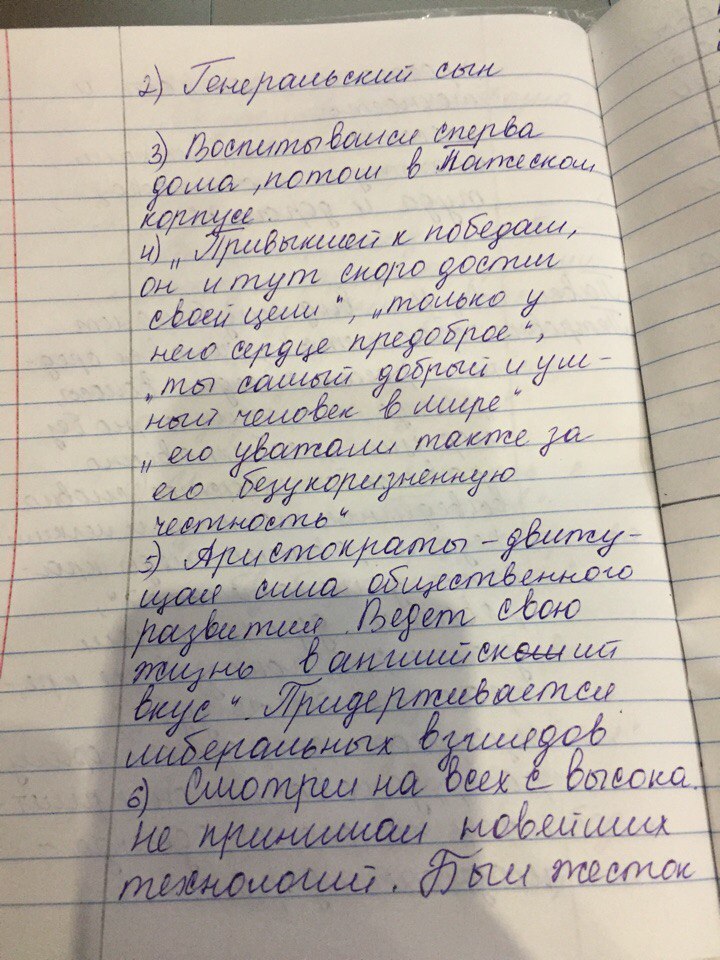 2) Генеральский сын
3) Воспитывался сперва
дома, потом в Пажеском
корпусе.
4) „Привыкший к победам,
он и тут скоро достиг
своей цели", „только у
него сердце предоброе",
„ты самый добрый и ум-
ный человек в мире"
„его уважали также за
его безукоризненную
честность"
5) Аристократы – движу-
щая сила общественного
развития. Ведет свою
жизнь в английский
вкус". Придерживается
либеральных взглядов
6) Смотрел на всех с высока.
Не принимал новейших
технологий. Был жесток